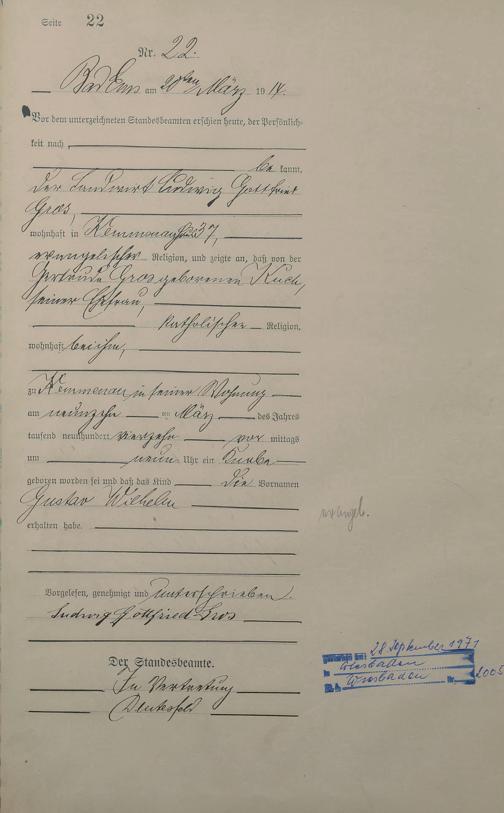 Seite 22
Nr. 22.
Bad Ems am 20ten März 1914.
Vor dem unterzeichneten Standesbeamten erschien heute, der Persönlich-
keit nach
be kannt,
der Landwirt Ludwig Gottfried
Gros,
wohnhaft in Kemmenau 37,
evangelischer Religion, und zeigte an, daß von der
Gertrude Gros geborenen Kuch,
seiner Ehefrau,
katholischer Religion,
wohnhaft bei ihm,
zu Kemmenau in seiner Wohnung
am neunzehn ten März des Jahres
tausend neunhundert vierzehn vor mittags
um neun Uhr ein Knabe
geboren worden sei und daß das Kind die Vornamen
Gustav Wilhelm
erhalten habe.
evangel.
Vorgelesen, genehmigt und unterschrieben.
Ludwig Gottfried Gros
Der Standesbeamte.
In Vertretung
28 September 1971
Wiesbaden
Wiesbaden Nr. 2005